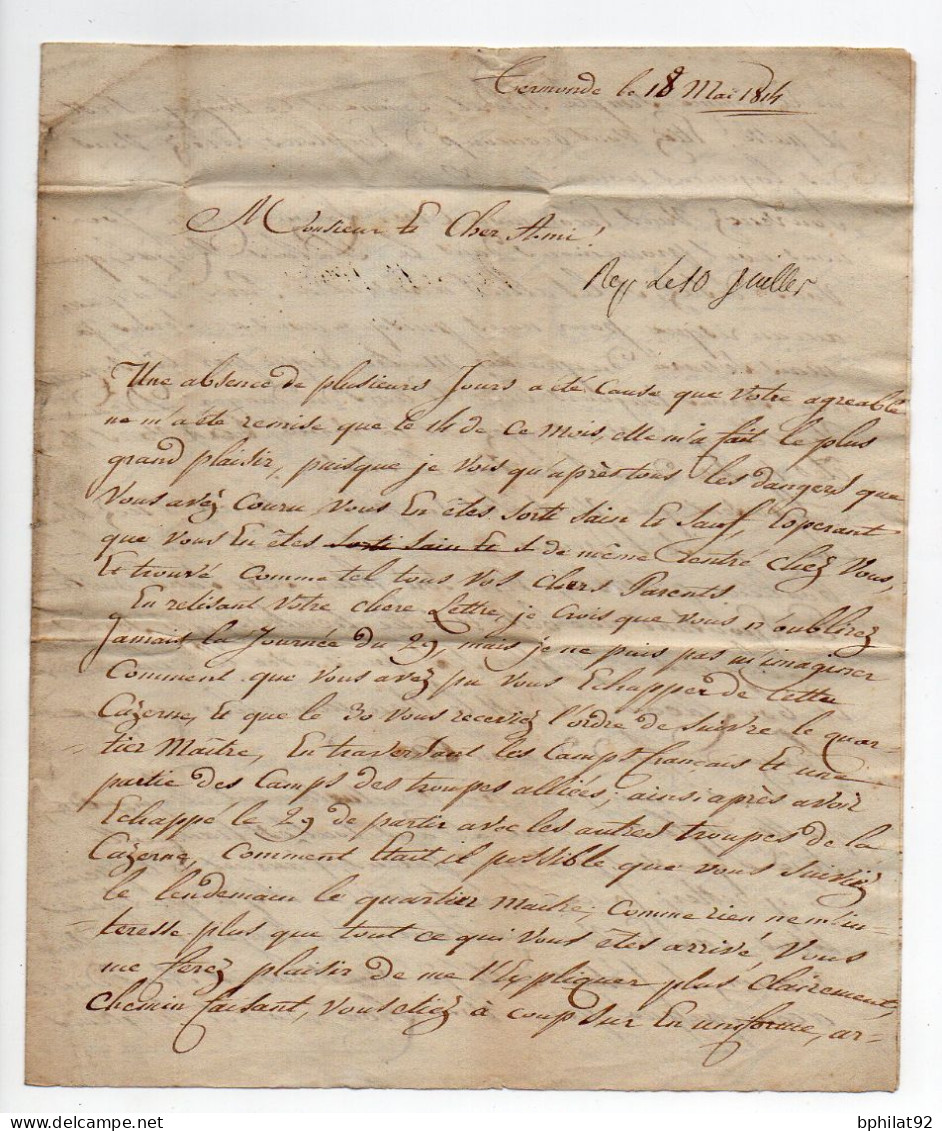 Termonde le 18 Mai 1814
Monsieur & Cher Ami!
le 10 Juillet
Une absence de plusieurs Jours a été Cause que Votre agreable
ne m'a été remise que le 14 de Ce Mois, elle m'a fait le plus
grand plaisir, puisque je Vois qu'après tous les dangers que
Vous avéz Couru, Vous En êtes Sorti Sain & Sauf, Esperant
que Vous En êtes Sorti Sain & S de même rentré chéz Vous,
Et trouvé Comme tel tous Vos chers Parents
En relisant Votre chere Lettre, je Crois que Vous n'oublirez
Jamais la Journée du 29, mais je ne puis pas m'imaginer
Comment que Vous avéz pu Vous Echapper de Cette
Cazerne, & que le 30 Vous receviez l'ordre de Suivre le quar-
-tier Maître, En traversant les Camps français & une
partie des Camps des troupes alliées; ainsi après avoir
Echappé le 29 de partir avec les autres troupes de la
Cazerne, Comment Etait il possible que Vous Suiviéz
le lendemain le quartier Maître; Comme rien ne m'in-
-teresse plus que tout Ce qui Vous êtes arrivé, Vous
me feréz plaisir de me l'Expliquer plus Clairement,
chemin faisant, Vous etiez à Coup Sur En uniforme, ar-
bphilat92